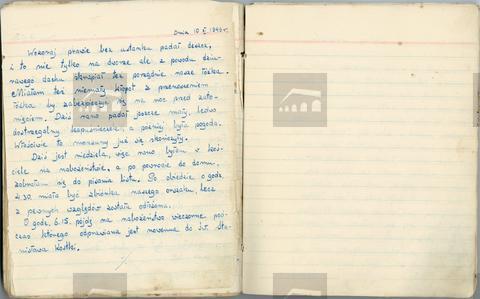 Dnia 10 X. 1943 r.
Wczoraj prawie bez ustanku padał deszcz,
i to nie tylko na dworze ale z powodu dziu-
rawego dachu skrapiał też porządnie nasze łóżka.
Miałam też niemały kłopot z przenoszeniem
łóżka by zabezpieczyć się na noc przed zato-
nięciem. Dziś rano padał jeszcze mały, ledwo
dostrzegalny kapuśniaczek, a później była pogoda.
Właściwie to monsuny już się skończyły.
Dziś jest niedziela, więc rano byłam w koś-
ciele na nabożeństwie, a po powrocie do domu,
zabrałam się do pisania listu. Po obiedzie o godz.
4.30 miała być zbiórka naszego orszaku, lecz
z pewnych względów została odłożona.
O godz. 6.15. pójdę na nabożeństwo wieczorne pod-
czas którego odprawiana jest nowenna do św. Sta-
nisława Kostki.